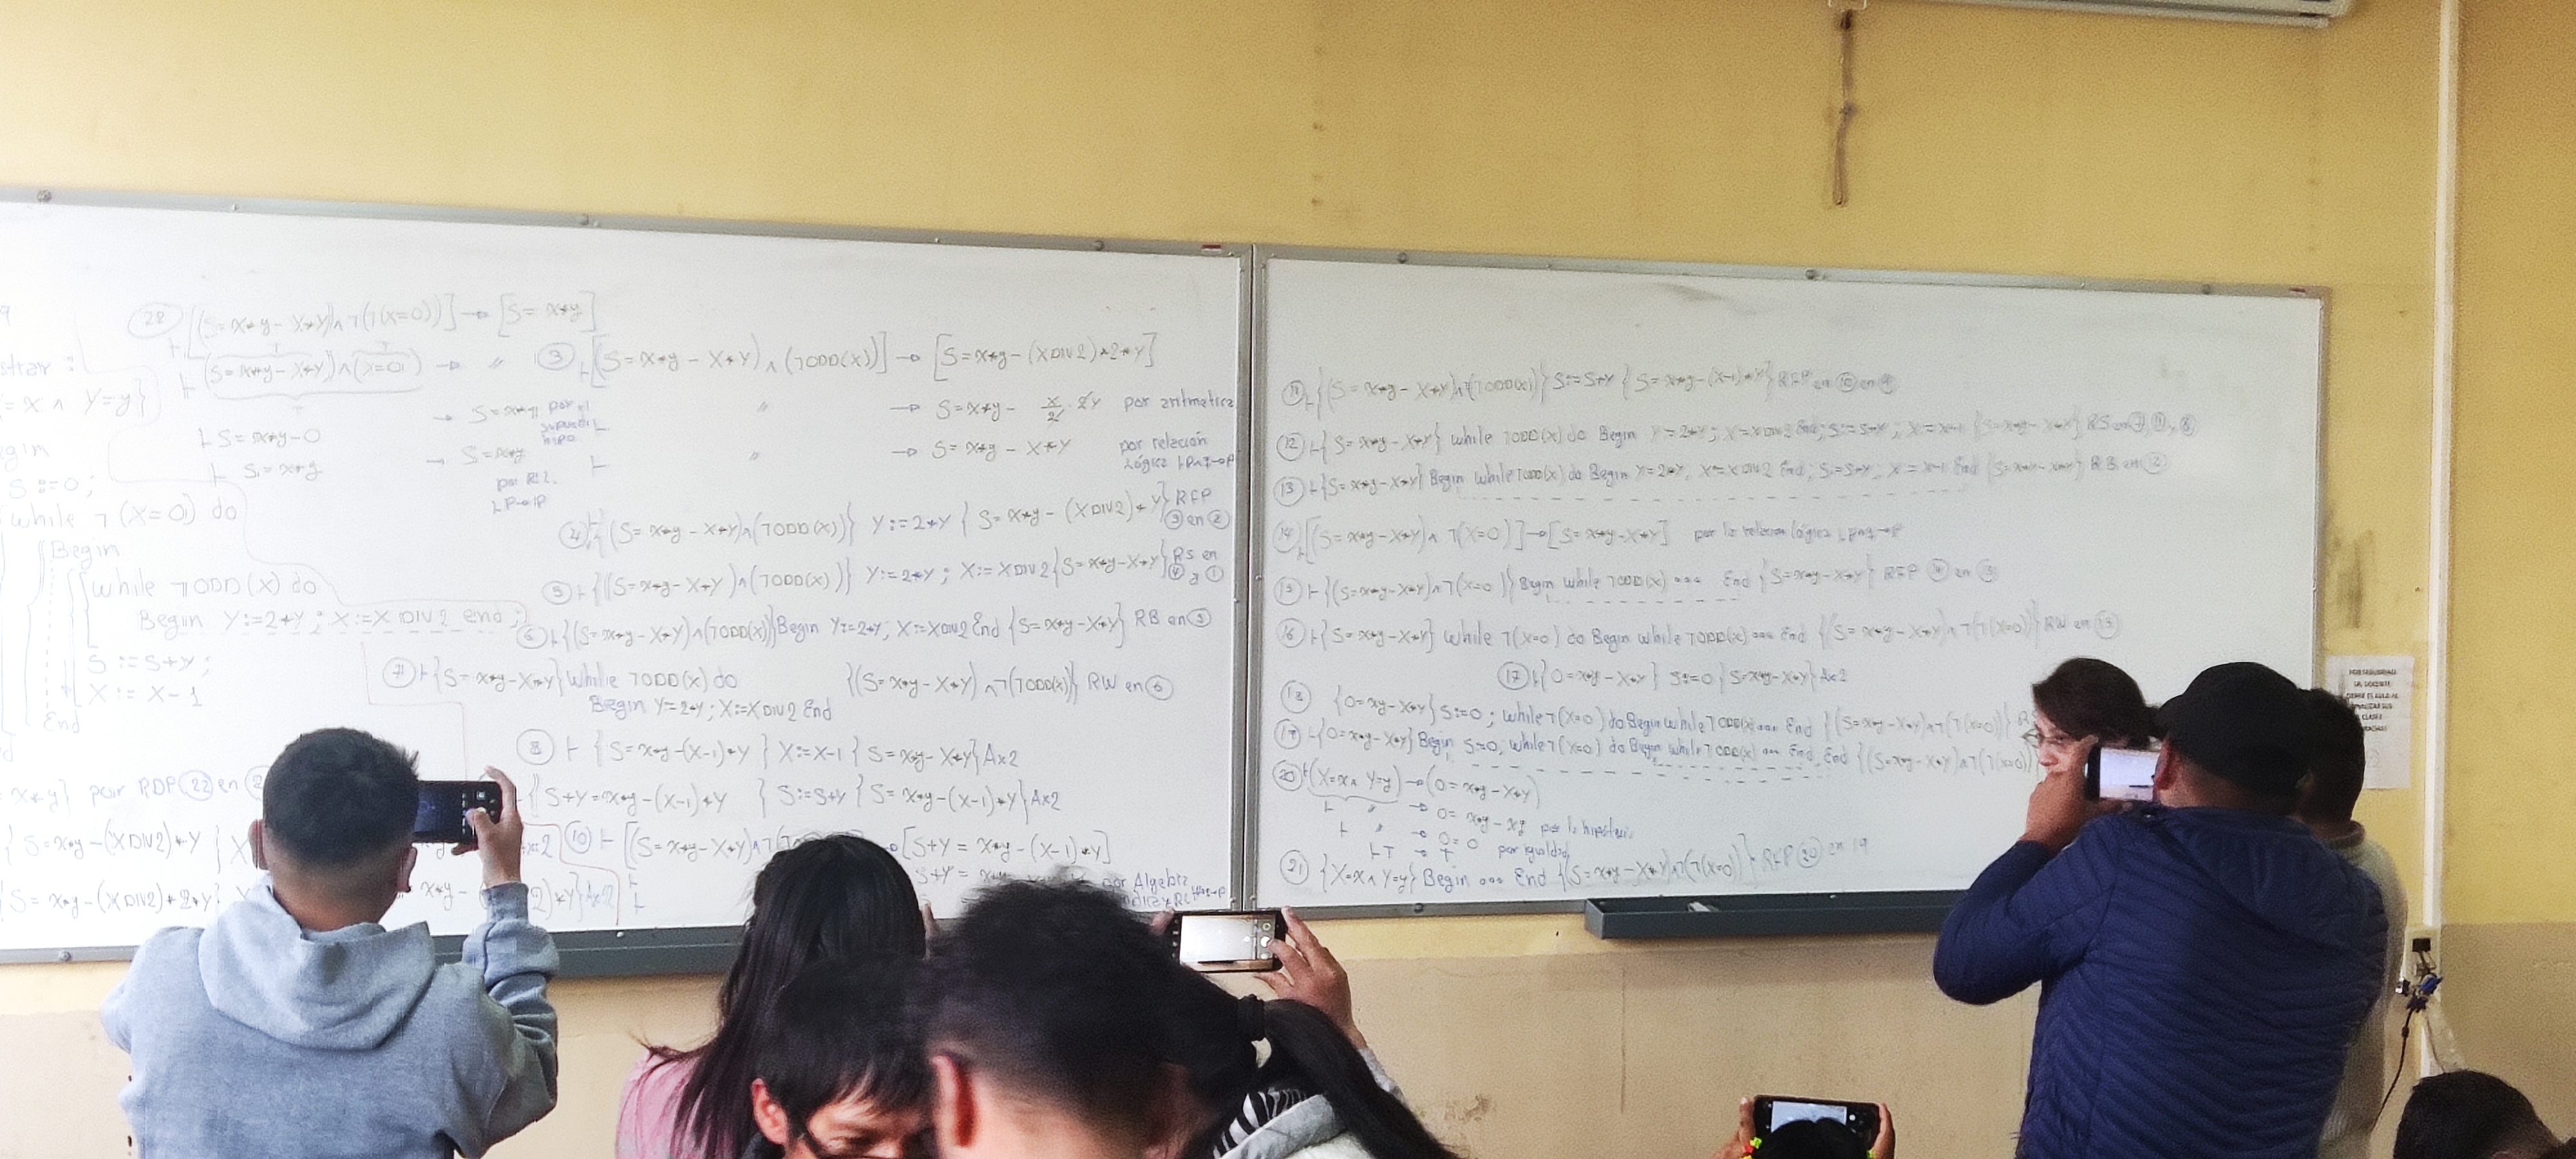 strar :
= x ∧ Y=y}
egin
S := 0;
while ¬(X=0) do
Begin
while ¬ODD(X) do
Begin Y:=2*Y ; X:=X DIV 2 end ;
S := S+Y ;
X := X-1
End
x*y} por RDP (22) en 2
{ S=x*y-(X DIV 2)*Y } X
{ S= x*y-(X DIV 2)*2*Y}
(22) ⊢ [(S=x*y-X*Y)∧¬(¬(X=0))] → [S= x*y]
⊢ (S=x*y-X*Y)∧(X=0) → "
⊢ S=x*y-0 → S=x*y por el
⊢ S=x*y → S=x*y
por RL2.
⊢P→P
(3) ⊢[(S=x*y-X*Y)∧(¬ODD(X))] → [S=x*y-(X DIV 2)*2*Y]
⊢ " → S=x*y- X/2 · 2Y por aritmetica
⊢ " → S=x*y - X*Y por relación Lógica ⊢P∧q→P
(4) ⊢{(S=x*y-X*Y)∧(¬ODD(X))} Y:=2*Y { S=x*y-(X DIV 2)*Y} RFP (3) en (2)
(5) ⊢{(S=x*y-X*Y)∧(¬ODD(X))} Y:=2*Y ; X:=X DIV 2 {S=x*y-X*Y} RS en (4) y (1)
(6) ⊢{(S=x*y-X*Y)∧(¬ODD(X))} Begin Y:=2*Y, X:=X DIV 2 End {S=x*y-X*Y} RB en (5)
(7) ⊢{S=x*y-X*Y} While ¬ODD(X) do {(S=x*y-X*Y)∧¬(¬ODD(X))} RW en (6)
Begin Y=2*Y ; X:=X DIV 2 End
(8) ⊢ {S=x*y-(X-1)*Y } X:=X-1 { S=x*y-X*Y} Ax2
{S+Y=x*y-(X-1)*Y } S:=S+Y { S=x*y-(X-1)*Y} Ax2
(10) ⊢ [(S=x*y-X*Y)∧¬ → [S+Y = x*y-(X-1)*Y]
S+Y = por Algebra
(11) ⊢{(S=x*y-X*Y)∧¬(¬ODD(X))} S:=S+Y { S=x*y-(X-1)*Y} RFP en (10) en (9)
(12) ⊢{ S=x*y-X*Y} while ¬ODD(X) do Begin Y=2*Y ; X:=X DIV 2 End; S:=S+Y ; X:=X-1 {S=x*y-X*Y} RS en (7), (11), (8)
(13) ⊢{S=x*y-X*Y} Begin while ¬ODD(X) do Begin Y=2*Y, X:=X DIV 2 End; S:=S+Y ; X:=X-1 End {S=x*y-X*Y} RB en (12)
(14) ⊢[(S=x*y-X*Y)∧ ¬(X=0)]→[S=x*y-X*Y] por la relacion lógica ⊢P∧q→P
(15) ⊢{(S=x*y-X*Y)∧¬(X=0)} Begin while ¬ODD(X) ... End {S=x*y-X*Y} RFP (14) en (13)
(16) ⊢{S=x*y-X*Y} while ¬(X=0) do Begin while ¬ODD(X) ... End {(S=x*y-X*Y)∧¬(¬(X=0))} RW en (15)
(17) ⊢{0=x*y-X*Y } S:=0 { S=x*y-X*Y} Ax2
(18) {0=x*y-X*Y} S:=0 ; while ¬(X=0) do Begin while ¬ODD(X) ... End {(S=x*y-X*Y)∧¬(¬(X=0))} RS
(19) ⊢{0=x*y-X*Y} Begin S:=0, while ¬(X=0) do Begin while ¬ODD(X) ... End, End {(S=x*y-X*Y)∧¬(¬(X=0))
(20) ⊢(X=x ∧ Y=y) → (0=x*y-X*Y)
⊢ " → 0= x*y-xy por la hipótesis
⊢ " → 0=0 por igualdad
⊢T → T
(21) {X=x ∧ Y=y} Begin ... End {(S=x*y-X*Y)∧¬(¬(X=0))} RFP (20) en 19